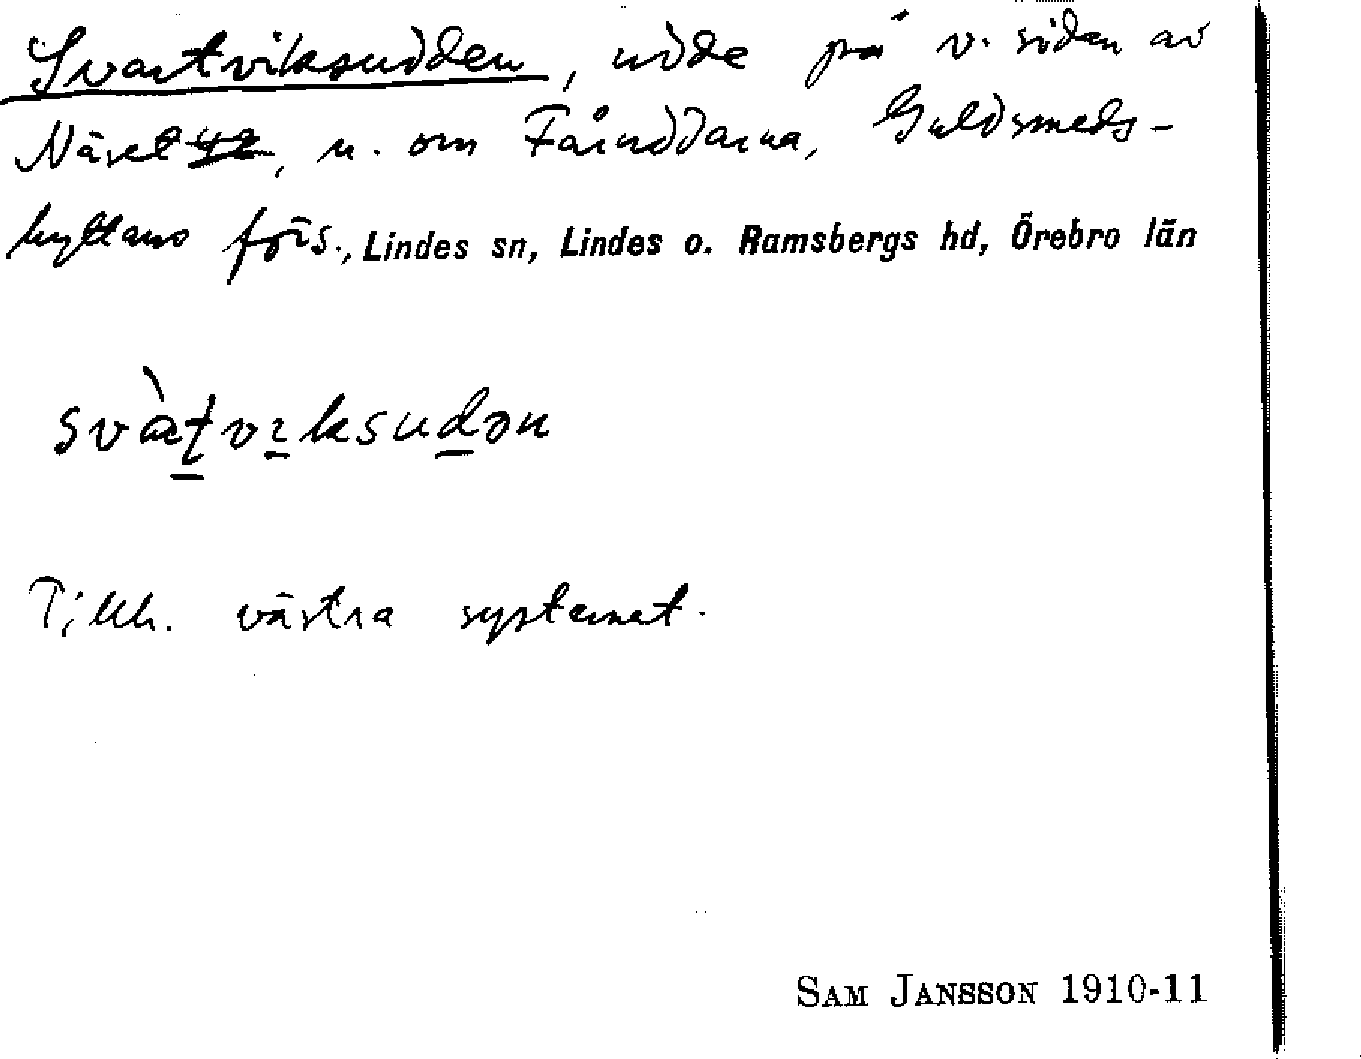 Svartviksudden, udde på v. sidan av
Näset, n. om Fåruddarna, Guldsmeds-
hyttans förs., Lindes sn, Lindes o. Ramsbergs hd, Örebro län
svàṯvıksudən
Tillh. västra systemet.
SAM JANSSON 1910-11